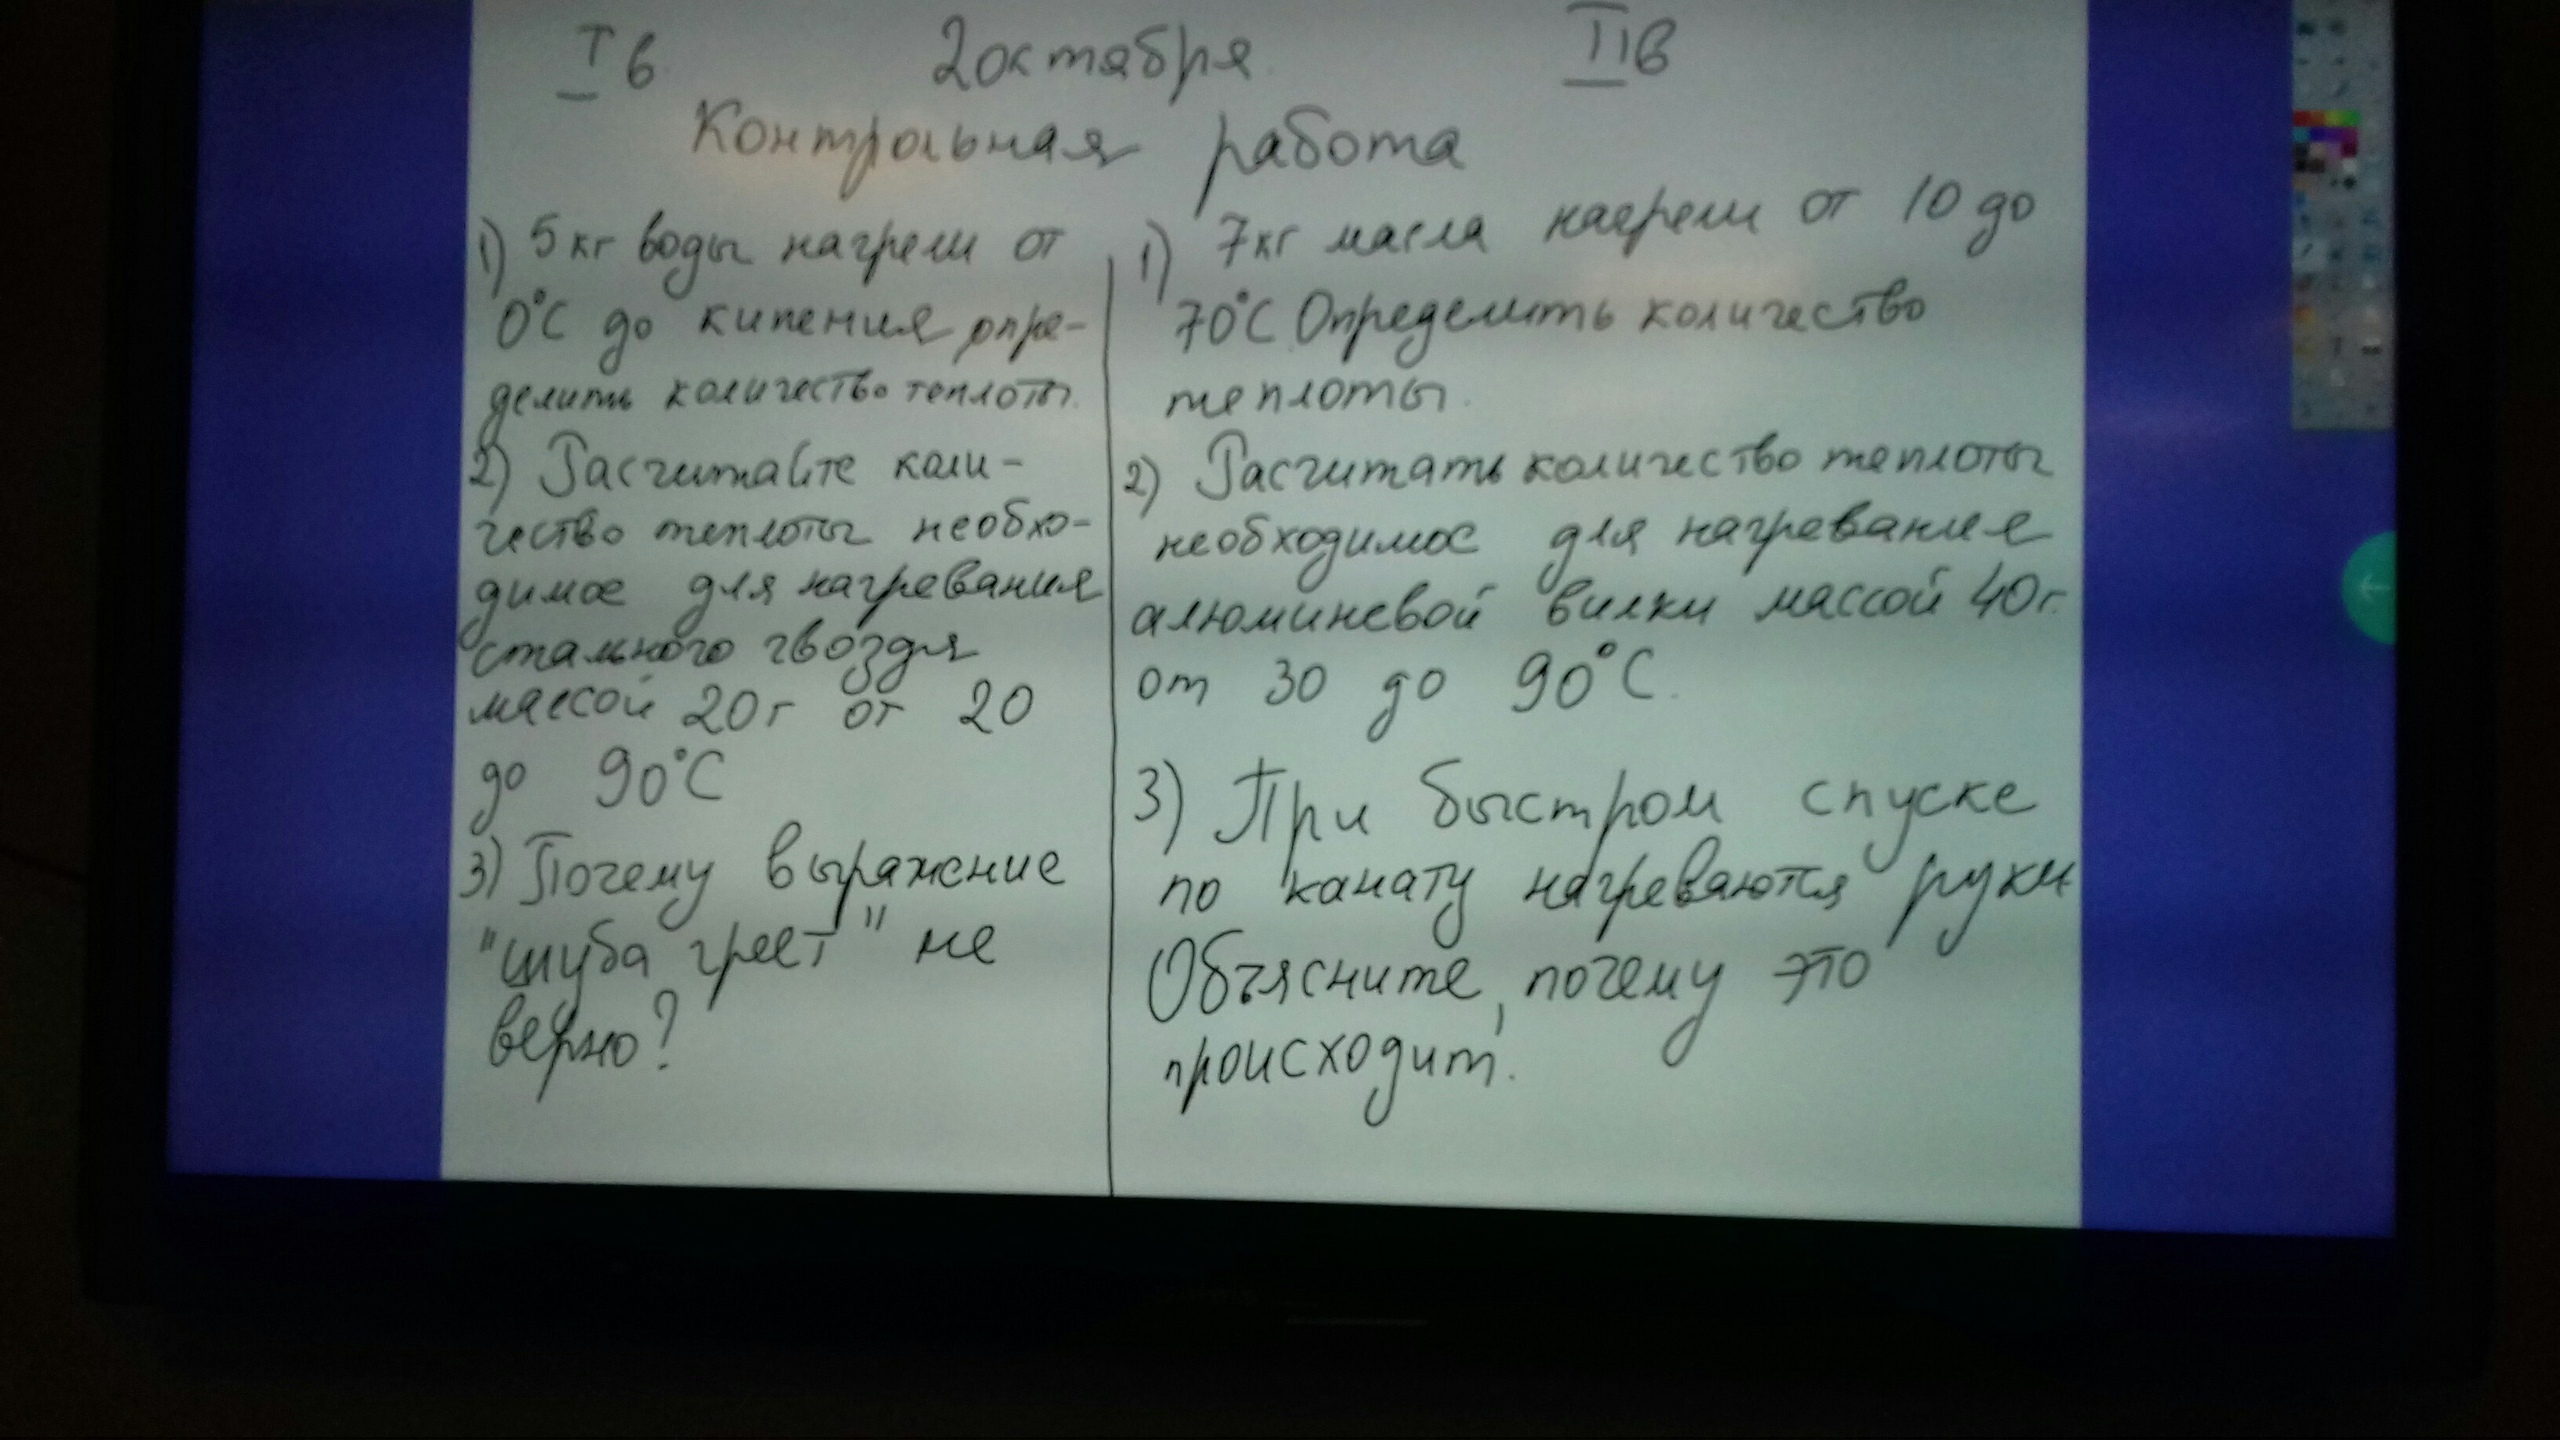 I в 2 октября II в
Контрольная работа
1) 5 кг воды нагрели от
0°С до кипения опре-
делить количество теплоты.
2) Расчитайте коли-
чество теплоты необхо-
димое для нагревания
стального гвоздя
массой 20 г от 20
до 90°С
3) Почему выражение
"шуба греет" не
верно?
1) 7 кг масла нагрели от 10 до
70°С Определить количество
теплоты.
2) Расчитать количество теплоты
необходимое для нагревания
алюминевой вилки массой 40 г.
от 30 до 90°С.
3) При быстром спуске
по канату нагреваются руки
Объясните, почему это
происходит.